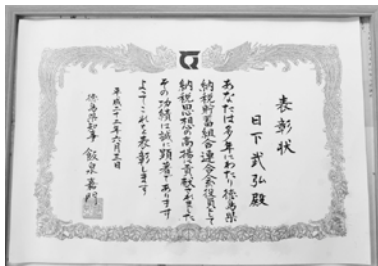 表彰状
日下武弘殿
あなたは多年にわたり徳島県
納税貯蓄組合連合会役員として
納税思想の高揚に貢献されました
その功績は誠に顕著であります
よってこれを表彰します
平成二十二年六月三日
徳島県知事 飯泉嘉門